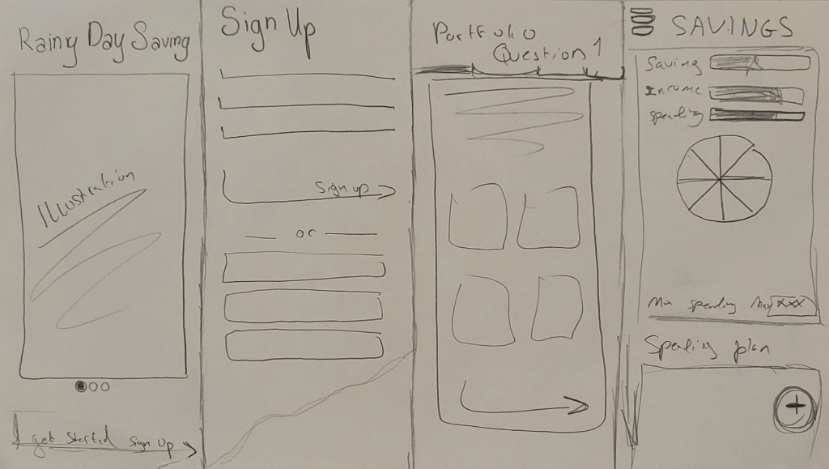 Rainy Day Saving
Illustration
get started Sign Up
Sign Up
Sign up
or
Portfolio
Question 1
SAVINGS
Saving
Income
spending
spending xxx
Spending plan
+